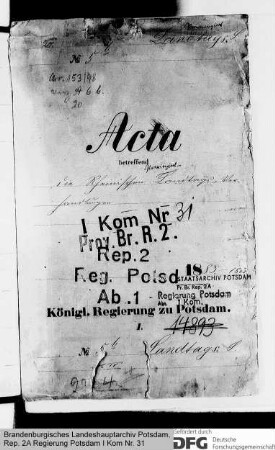 Landtags
No 5
Acta
betreffend
die Rheinischen Provinzial-Landtags-Ver
handlungen
I Kom Nr 31
Prov. Br. R. 2.
Rep. 2
Reg. Potsd.
Ab. 1
18
STAATSARCHIV POTSDAM
Pr. Br. Rep. 2A
Regierung Potsdam
Abt. I Kom.
Königl. Regierung zu Potsdam.
I.
14893
Landtags
Brandenburgisches Landeshauptarchiv Potsdam,
Rep. 2A Regierung Potsdam I Kom Nr. 31
gefördert durch
DFG Deutsche
Forschungsgemeinschaft